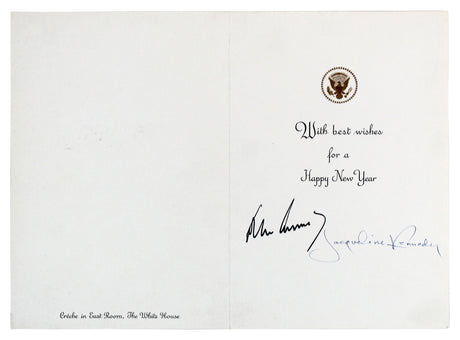 Crèche in East Room, The White House
With best wishes
for a
Happy New Year
Jacqueline Kennedy